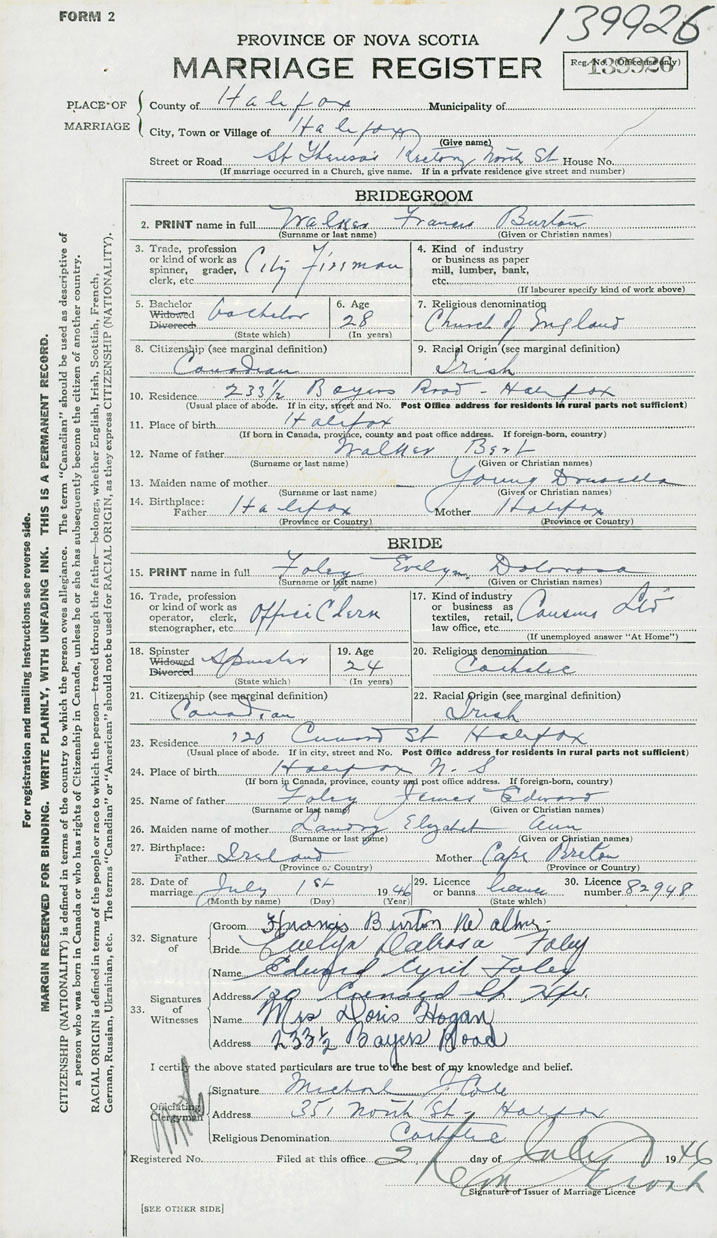 FORM 2
139926
PROVINCE OF NOVA SCOTIA
MARRIAGE REGISTER
Reg. No. (Office use only)
139926
PLACE OF MARRIAGE
County of Halifax Municipality of
City, Town or Village of Halifax
(Give name)
Street or Road St Theresa's North St House No.
(If marriage occurred in a Church, give name. If in a private residence give street and number)
BRIDEGROOM
2. PRINT name in full Walker Francis Burton
(Surname or last name) (Given or Christian names)
3. Trade, profession or kind of work as spinner, grader, clerk, etc. City Fireman
4. Kind of industry or business as paper mill, lumber, bank, etc.
(If labourer specify kind of work above)
5. Bachelor Widowed Divorced bachelor
(State which)
6. Age 28
(In years)
7. Religious denomination
Church of England
8. Citizenship (see marginal definition)
Canadian
9. Racial Origin (see marginal definition)
Irish
10. Residence 233 1/2 Bayers Road - Halifax
(Usual place of abode. If in city, street and No. Post Office address for residents in rural parts not sufficient)
11. Place of birth Halifax
(If born in Canada, province, county and post office address. If foreign-born, country)
12. Name of father Walker Bert
(Surname or last name) (Given or Christian names)
13. Maiden name of mother Young
(Surname or last name) (Given or Christian names)
14. Birthplace: Father Halifax Mother Halifax
(Province or Country) (Province or Country)
BRIDE
15. PRINT name in full Foley Evelyn Dolorosa
(Surname or last name) (Given or Christian names)
16. Trade, profession or kind of work as operator, clerk, stenographer, etc. Office Clerk
17. Kind of industry or business as textiles, retail, law office, etc. Cousins Ltd
(If unemployed answer "At Home")
18. Spinster Widowed Divorced Spinster
(State which)
19. Age 24
(In years)
20. Religious denomination
Catholic
21. Citizenship (see marginal definition)
Canadian
22. Racial Origin (see marginal definition)
Irish
23. Residence 120 Cunard St Halifax
(Usual place of abode. If in city, street and No. Post Office address for residents in rural parts not sufficient)
24. Place of birth Halifax N.S
(If born in Canada, province, county and post office address. If foreign-born, country)
25. Name of father Foley James Edward
(Surname or last name) (Given or Christian names)
26. Maiden name of mother Landry Elizabet Ann
(Surname or last name) (Given or Christian names)
27. Birthplace: Father Ireland Mother Cape Breton
(Province or Country) (Province or Country)
28. Date of marriage July 1st 1946
(Month by name) (Day) (Year)
29. Licence or banns licence
30. Licence number 82948
32. Signature of
Groom Francis Burton Walker
Bride Evelyn Dalrosa Foley
33. Signatures of Witnesses
Name Edward Cyril Foley
Address 120 Cunard St. Hfx.
Name Mrs Doris Hogan
Address 233 1/2 Bayers Road
I certify the above stated particulars are true to the best of my knowledge and belief.
Officiating Clergyman
Signature Michael
Address 351 North St - Halifax
Religious Denomination Catholic
Registered No. Filed at this office 2 day of July 1946
Signature of Issuer of Marriage Licence
[SEE OTHER SIDE]
For registration and mailing instructions see reverse side.
MARGIN RESERVED FOR BINDING. WRITE PLAINLY, WITH UNFADING INK. THIS IS A PERMANENT RECORD.
CITIZENSHIP (NATIONALITY) is defined in terms of the country to which the person owes allegiance. The term "Canadian" should be used as descriptive of
a person who was born in Canada or who has rights of Citizenship in Canada, unless he or she has subsequently become the citizen of another country.
RACIAL ORIGIN is defined in terms of the people or race to which the person—traced through the father—belongs, whether English, Irish, Scottish, French,
German, Russian, Ukrainian, etc. The terms "Canadian" or "American" should not be used for RACIAL ORIGIN, as they express CITIZENSHIP (NATIONALITY).